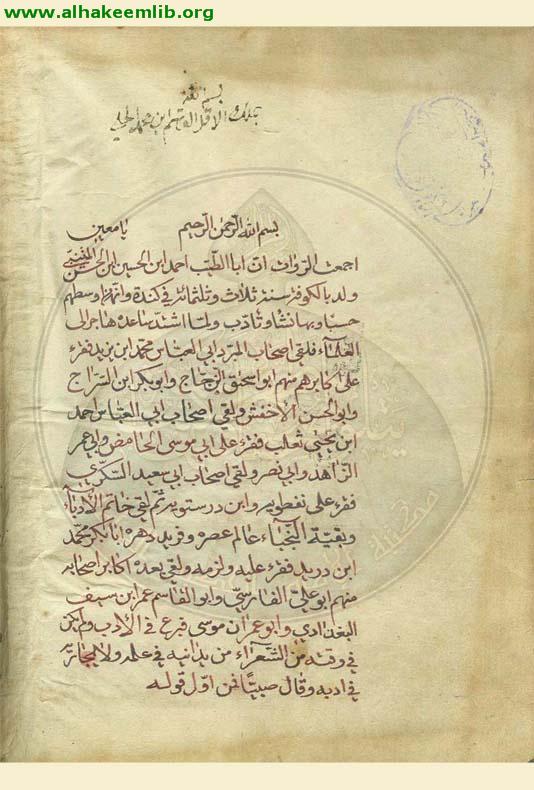 www.alhakeemlib.org
بسم الله
الاقل القاسم ابن محمد
بسم الله الرحمن الرحيم يا معين
اجمعت الرواة ان ابا الطيب احمد ابن الحسين ابن الحسن المتنبي
ولد بالكوفة سنة ثلاث وثلثمائة في كندة وانه اوسطهم
حسبا وبها نشا وتادب ولما اشتد ساعده هاجر الى
العلماء فلقي اصحاب المبرد ابي العباس محمد ابن يزيد فقرء
على اكابرهم منهم ابو اسحق الزجاج وابو بكر ابن السراج
وابو الحسن الاخفش ولقي اصحاب ابي العباس احمد
ابن يحيى ثعلب فقرء على ابي موسى الحامض وابي عمر
الزاهد وابي نصر ولقي اصحاب ابي سعيد السكري
فقرء على نفطويه وابن درستويه ثم لقي خاتم الادباء
وبقية النجباء عالم عصره وفريد دهره ابا بكر محمد
ابن دريد فقرء عليه ولزمه ولقي بعده اكابر اصحابه
منهم ابو علي الفارسي وابو القاسم عمر ابن سيف
البغدادي وابو عمران موسى فبرع في الادب ولم يكن
في وقته من الشعراء من يدانيه في علمه ولا يجاريه
في ادبه وقال صبيا فمن اول قوله